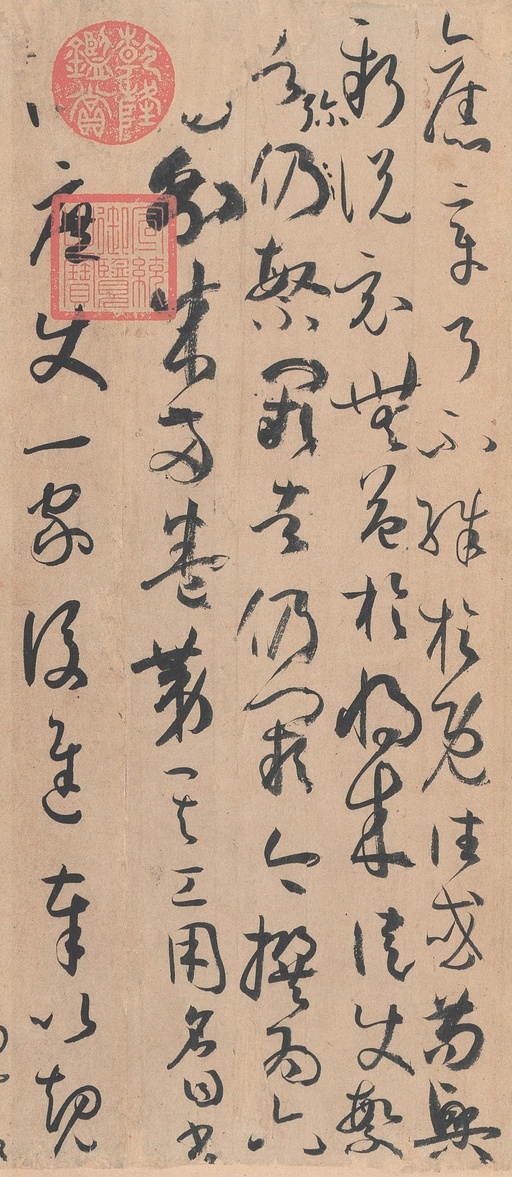 舊章了不殊於既往或苟興
新說竟無益於將來徒使繁
者彌仍繁闕者仍闕今撰為六
分成兩卷第其工用名曰書
庶使一家後進奉以規
乾隆鑑賞
宣統御覽之寶